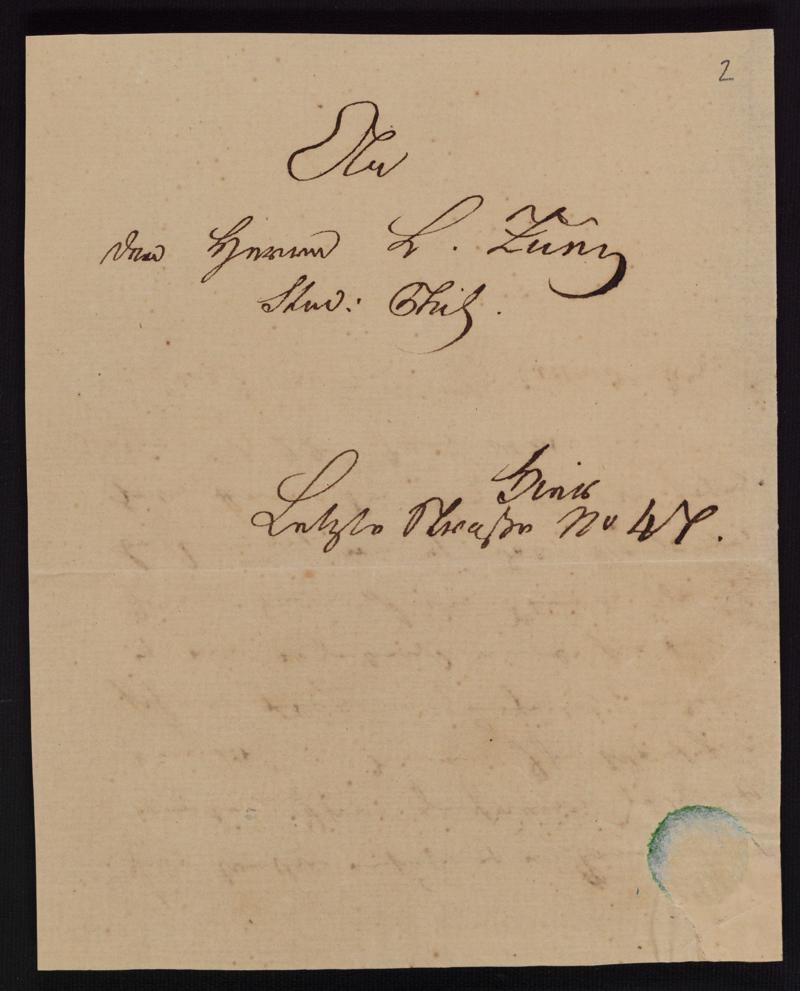 2
An
den Herrn L. Zunz
Stud: Phil.
Hier
Letzte Straße No 47.